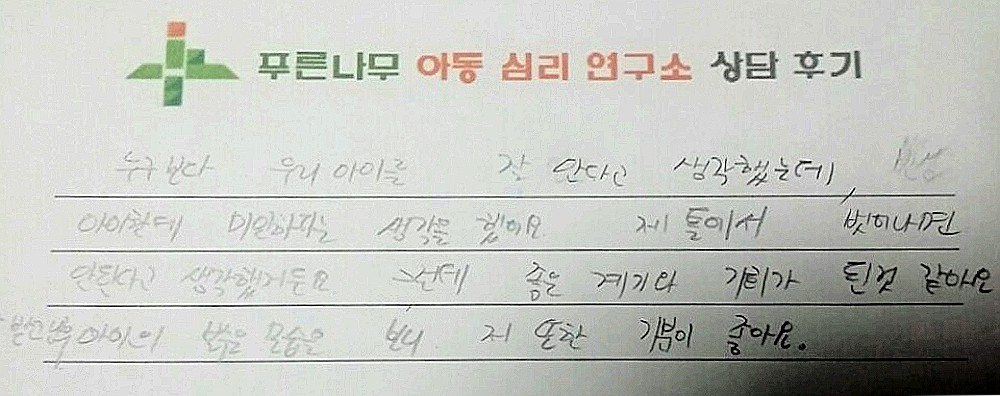 푸른나무 아동 심리 연구소 상담 후기
누구보다 우리 아이를 잘 안다고 생각했는데,
아이한데 미안하다는 생각을 했어요 제 틀에서 벗어나면
안된다고 생각했거든요 그런데 좋은 계기와 기회가 된것 같아요
아이의 밝은 모습을 보니 저 또한 기분이 좋아요.